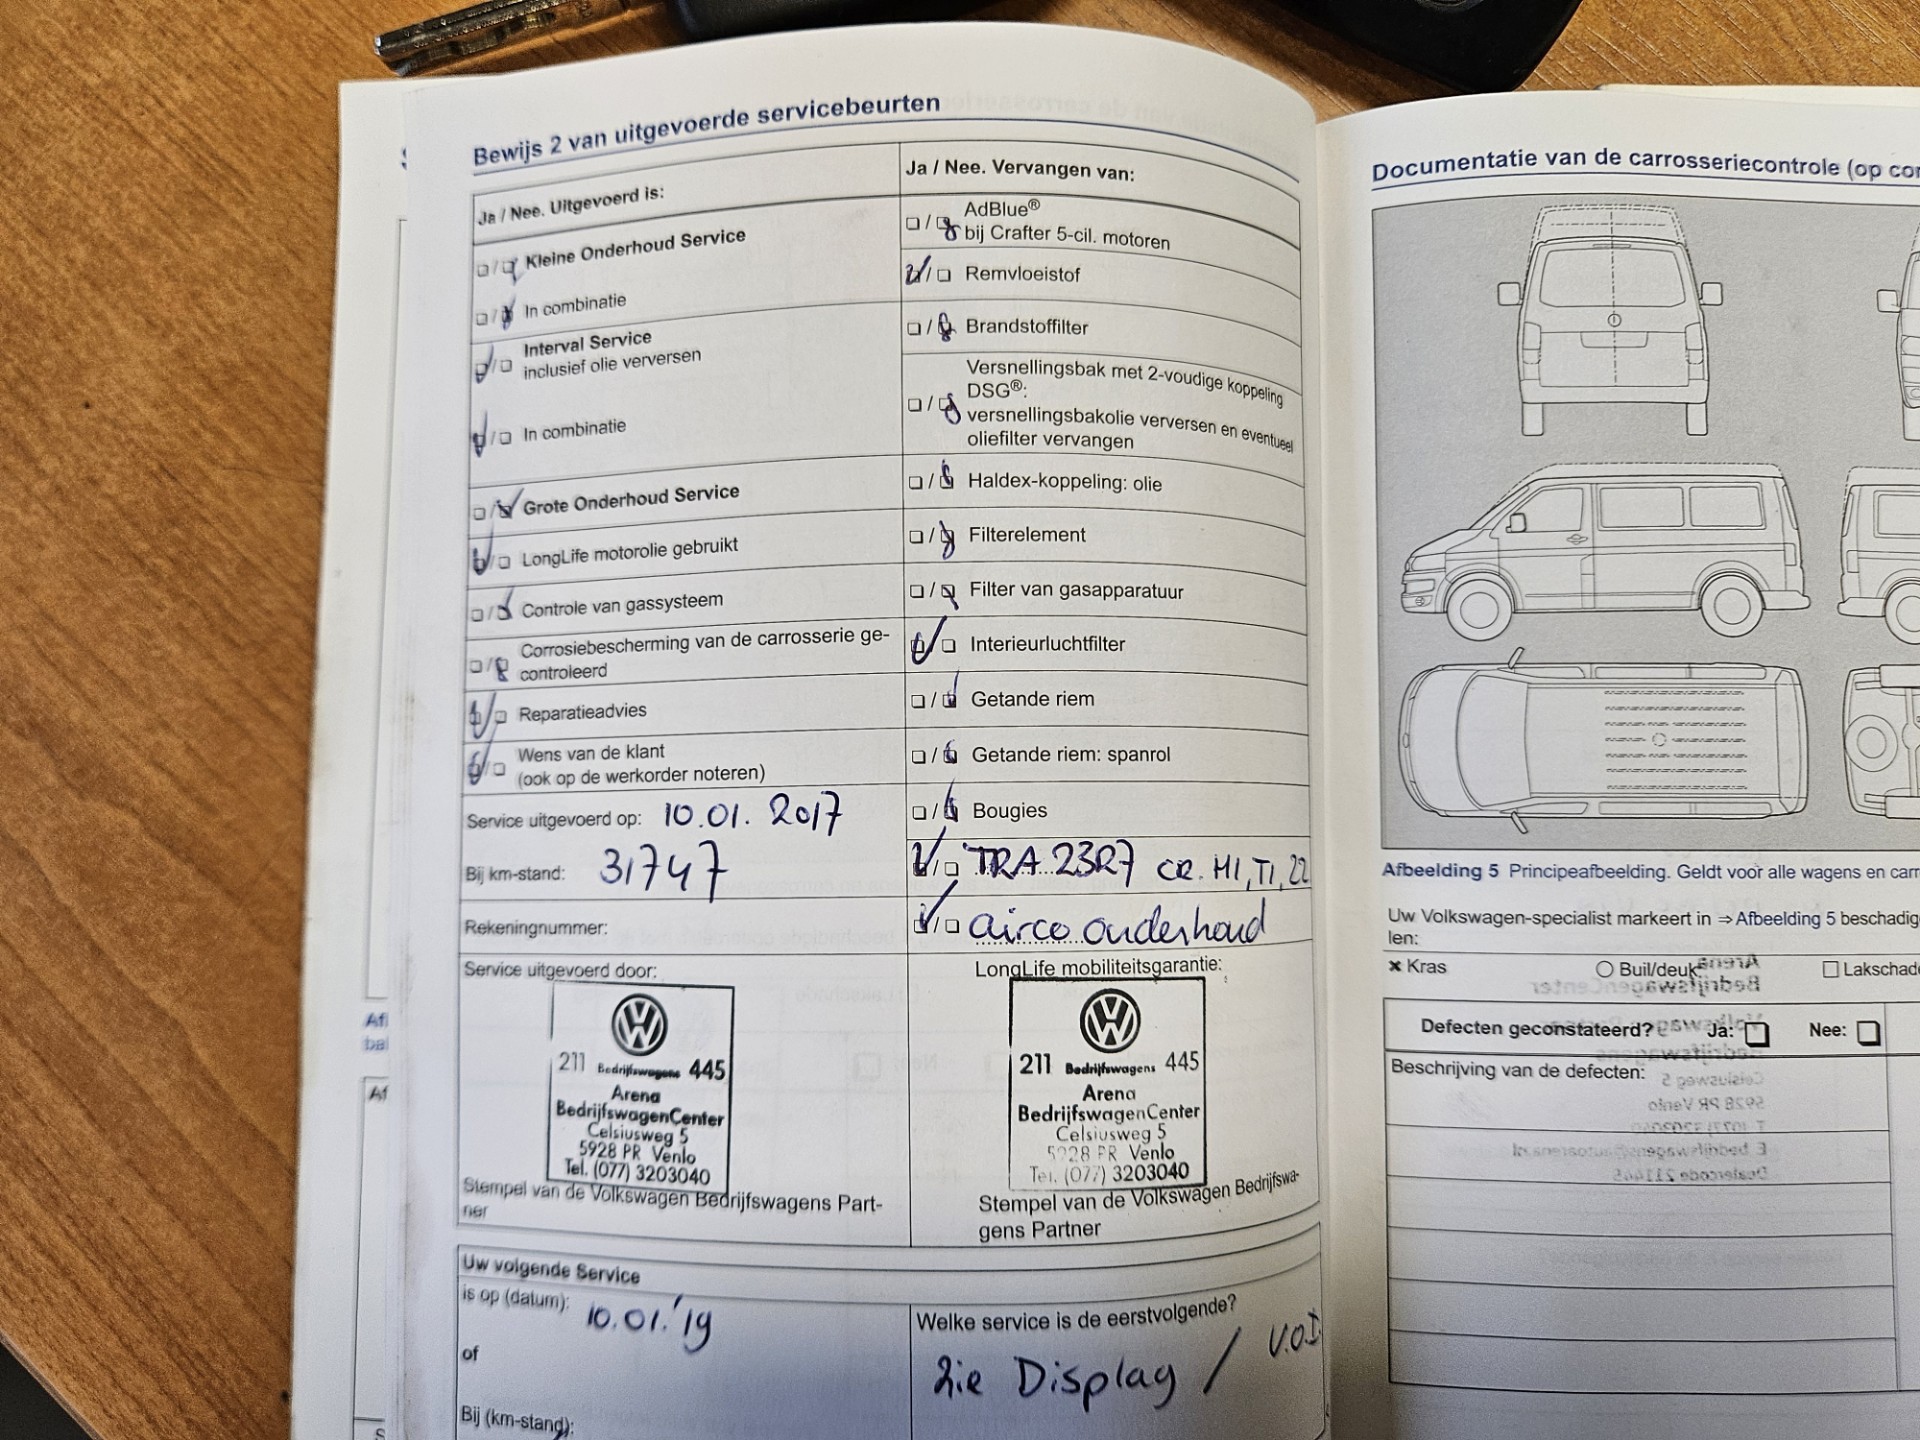 Bewijs 2 van uitgevoerde servicebeurten
Ja / Nee. Uitgevoerd is:
Kleine Onderhoud Service
In combinatie
Interval Service
inclusief olie verversen
In combinatie
Grote Onderhoud Service
LongLife motorolie gebruikt
Controle van gassysteem
Corrosiebescherming van de carrosserie ge-
controleerd
Reparatieadvies
Wens van de klant
(ook op de werkorder noteren)
Service uitgevoerd op: 10.01.2017
Bij km-stand: 31747
Rekeningnummer:
Ja / Nee. Vervangen van:
AdBlue®
bij Crafter 5-cil. motoren
Remvloeistof
Brandstoffilter
Versnellingsbak met 2-voudige koppeling
DSG®:
versnellingsbakolie verversen en eventueel
oliefilter vervangen
Haldex-koppeling: olie
Filterelement
Filter van gasapparatuur
Interieurluchtfilter
Getande riem
Getande riem: spanrol
Bougies
TRA 23R7 CR. M1, T1, 22
airco onderhoud
Service uitgevoerd door:
211 Bedrijfswagens 445
Arena
BedrijfswagenCenter
Celsiusweg 5
5928 PR Venlo
Tel. (077) 3203040
Stempel van de Volkswagen Bedrijfswagens Part-
ner
LongLife mobiliteitsgarantie:
211 Bedrijfswagens 445
Arena
BedrijfswagenCenter
Celsiusweg 5
5928 PR Venlo
Tel. (077) 3203040
Stempel van de Volkswagen Bedrijfswa-
gens Partner
Uw volgende Service
is op (datum): 10.01.'19
of
Bij (km-stand):
Welke service is de eerstvolgende?
Zie Display / V.O.I
Documentatie van de carrosseriecontrole (op
Afbeelding 5 Principeafbeelding. Geldt voor alle wagens en
Uw Volkswagen-specialist markeert in ⇒ Afbeelding 5
len:
× Kras
○ Buil/deuk
□
Defecten geconstateerd? Ja: □ Nee: □
Beschrijving van de defecten: